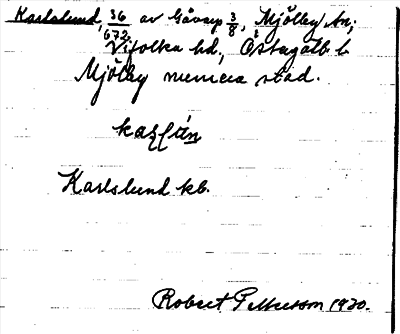 Karlslund, 36/672 av Gåvarp 3/8, Mjölby sn;
Vifolka hd, Östergötl. l.
Mjölby numera stad.
Karlslund kb.
Robert Pettersson 1930.